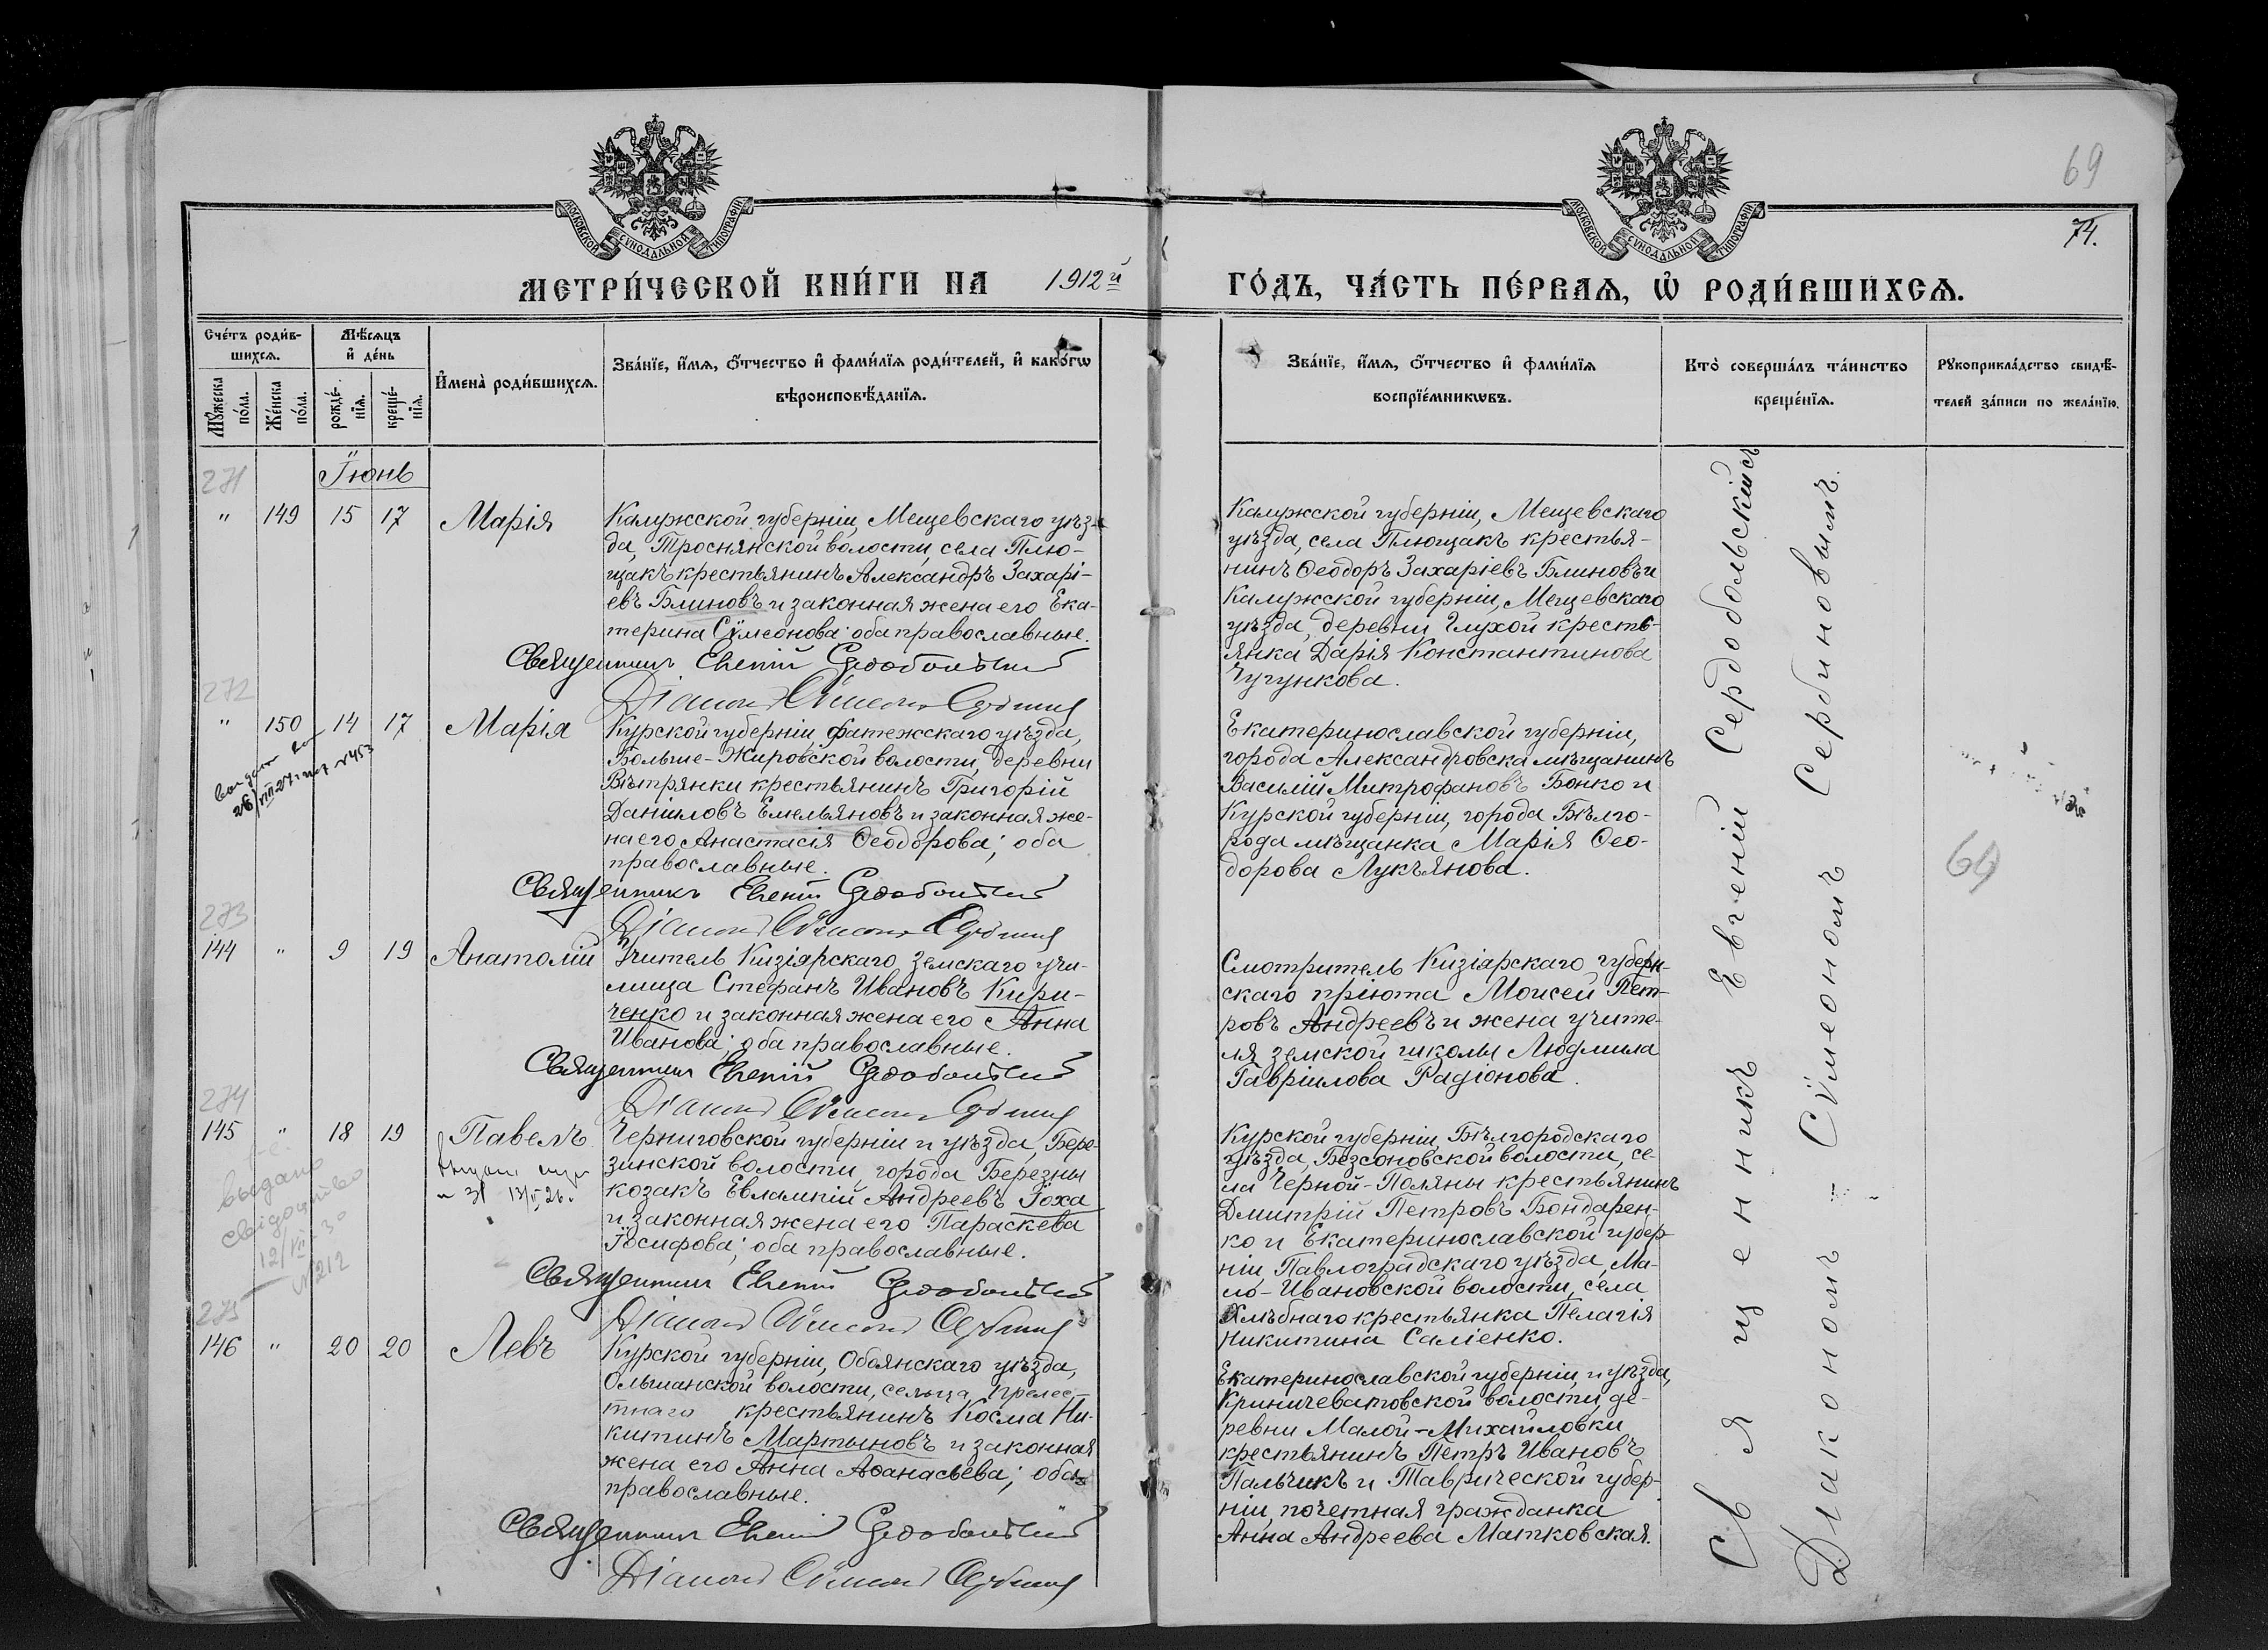 69
74.
МОСКОВСКОЙ СѴНОДАЛЬНОЙ ТИПОГРАФІИ
МОСКОВСКОЙ СѴНОДАЛЬНОЙ ТИПОГРАФІИ
МЕТРИ́ЧЕСКОЙ КНИ́ГИ НА 1912й ГО́ДЪ, ЧА́СТЬ ПЕ́РВАѦ, Ѡ РОДИ́ВШИХСѦ.
Сче́тъ роди́в-
шихсѧ.
Мꙋжеска
по́ла.
Же́нска
по́ла.
Мѣ́сѧцъ
и҆ де́нь
рожде́-
нїѧ.
креще́-
нїѧ.
И҆мена̀ роди́вшихсѧ.
Зва́нїе, и҆́мѧ, ѻ҆́тчество и҆ фами́лїѧ роди́телей, и҆ како́гѡ
вѣроисповѣ́данїѧ.
Зва́нїе, и҆́мѧ, ѻ҆́тчество и҆ фами́лїѧ
воспрїе́мникѡвъ.
Кто̀ соверша́лъ та́инство
креще́нїѧ.
Рꙋкоприкла́дство свидѣ́-
телей за́писи по жела́нїю.
Іюнь
271
" 149 15 17 Марія
Калужской губерніи, Мещевскаго уѣз-
да, Троснянской волости, села Плю-
щакъ крестьянинъ Александръ Захарі-
евъ Блиновъ и законная жена его Ека-
терина Сѵмеонова; оба православные.
Священникъ Евгеній Сердобольскій
Діаконъ Сѵмеонъ Сербиновъ
Калужской губерніи, Мещевскаго
уѣзда, села Плющакъ крестья-
нинъ Ѳеодоръ Захаріевъ Блиновъ и
Калужской губерніи, Мещевскаго
уѣзда, деревни Глухой кресть-
янка Дарія Константинова
Чугункова.
272
" 150 14 17 Марія
26/VIII 27 №453
Курской губерніи, Фатежскаго уѣзда,
Больше-Жировской волости, деревни
Вѣтрянки крестьянинъ Григорій
Даніиловъ Емельяновъ и законная же-
на его Анастасія Ѳеодорова; оба
православные.
Священникъ Евгеній Сердобольскій
Діаконъ Сѵмеонъ Сербиновъ
Екатеринославской губерніи,
города Александровска мѣщанинъ
Василій Митрофановъ Бонко и
Курской губерніи, города Бѣлго-
рода мѣщанка Марія Ѳео-
дорова Лукъянова.
69
273
144 " 9 19 Анатолій
Учитель Кизіярскаго земскаго учи-
лища Стефанъ Ивановъ Кири-
ченко и законная жена его Анна
Иванова; оба православные.
Священникъ Евгеній Сердобольскій
Діаконъ Сѵмеонъ Сербиновъ
Смотритель Кизіярскаго губерн-
скаго пріюта Моисей Пет-
ровъ Андреевъ и жена учите-
ля земской школы Людмила
Гавріилова Радіонова.
274
145 " 18 19 Павелъ
выдано
свідоцтво
12/VII 30
№ 212
Черниговской губерніи и уѣзда, Бере-
зинской волости, города Березны
козакъ Евлампій Андреевъ Іоха
и законная жена его Параскева
Іосифова; оба православные.
Священникъ Евгеній Сердобольскій
Діаконъ Сѵмеонъ Сербиновъ
Курской губерніи, Бѣлгородскаго
уѣзда, Безсоновской волости, се-
ла Черной-Поляны крестьянинъ
Дмитрій Петровъ Бондарен-
ко и Екатеринославской губер-
ніи, Павлоградскаго уѣзда, Ма-
ло-Ивановской волости, села
Хлѣбнаго крестьянка Пелагія
Никитина Саліенко.
275
146 " 20 20 Левъ
Курской губерніи, Обоянскаго уѣзда,
Ольшанской волости, сельца Прелес-
тнаго крестьянинъ Косма Ни-
китинъ Мартыновъ и законная
жена его Анна Аѳанасьева; оба
православные.
Священникъ Евгеній Сердобольскій
Діаконъ Сѵмеонъ Сербиновъ
Екатеринославской губерніи и уѣзда,
Криничеватовской волости, де-
ревни Малой-Михайловки
крестьянинъ Петръ Ивановъ
Пальчикъ и Таврической губер-
ніи, почетная гражданка
Анна Андреева Матковская.
Священникъ Евгеній Сердобольскій съ
Діакономъ - Сѵмеономъ Сербиновымъ.